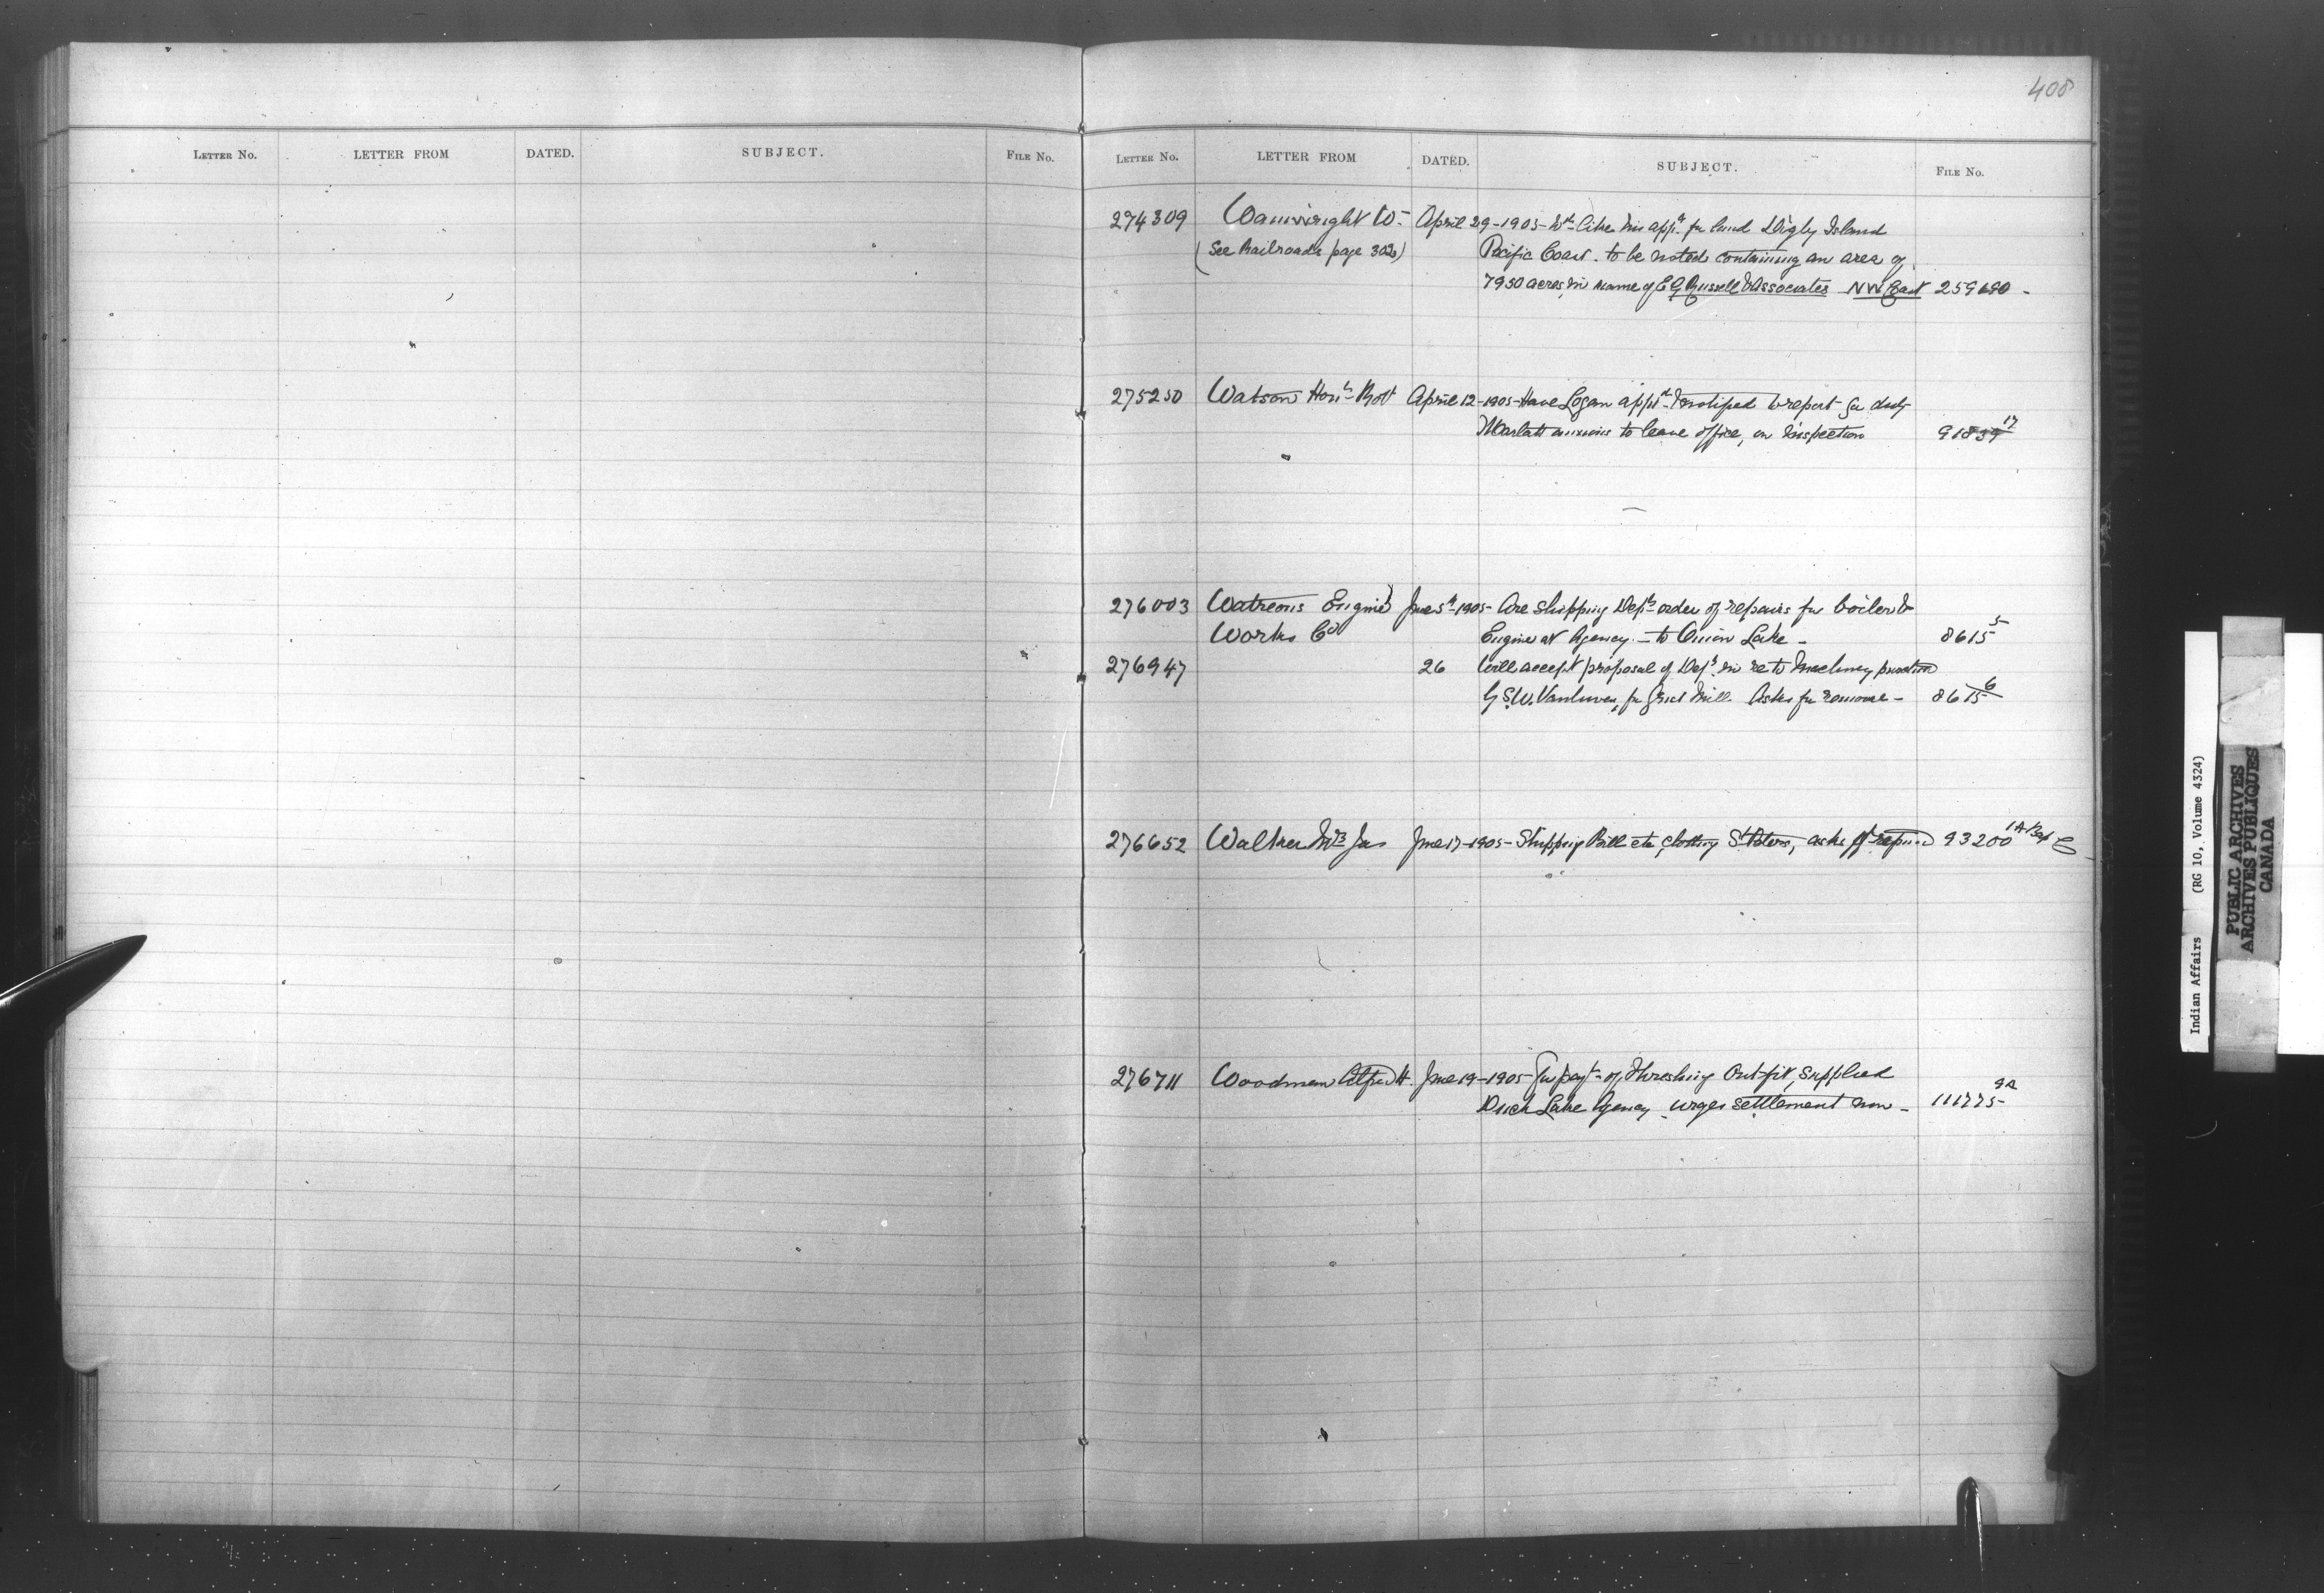 408
LETTER NO. LETTER FROM DATED. SUBJECT. FILE NO.
LETTER NO. LETTER FROM DATED. SUBJECT. FILE NO.
274309 Wainwright W. April 29-1905- Wd. like his appn. for land Digby Island
(See Railroads page 302) Pacific Coast. to be noted containing an area of
7950 acres in name of E G Russell & Associates NW Coast 259690 -
275250 Watson Honble Robt April 12-1905- Have Logan appd. & notified to report for duty
Marlatt anxious to leave office, on inspection 91839 17
276003 Waterous Engine June 5th-1905- Are shipping Depts order of repairs for boiler &
Works Co Engine at Agency - to Onion Lake - 8615 5
276947 26 Will accept proposal of Dept. in re to Machinery
G S. W. for Grist Mill. Asks for 8615 6
276652 Walker Mrs Jas June 17-1905- Shipping Bill etc clothing St Peters, asks refund 93200 1A
276711 Woodman Alfred H. June 19-1905 for payt. of Threshing Outfit, supplied
Duck Lake Agency. urges settlement now - 111775 9A
Indian Affairs (RG 10, Volume 4324)
PUBLIC ARCHIVES
ARCHIVES PUBLIQUES
CANADA